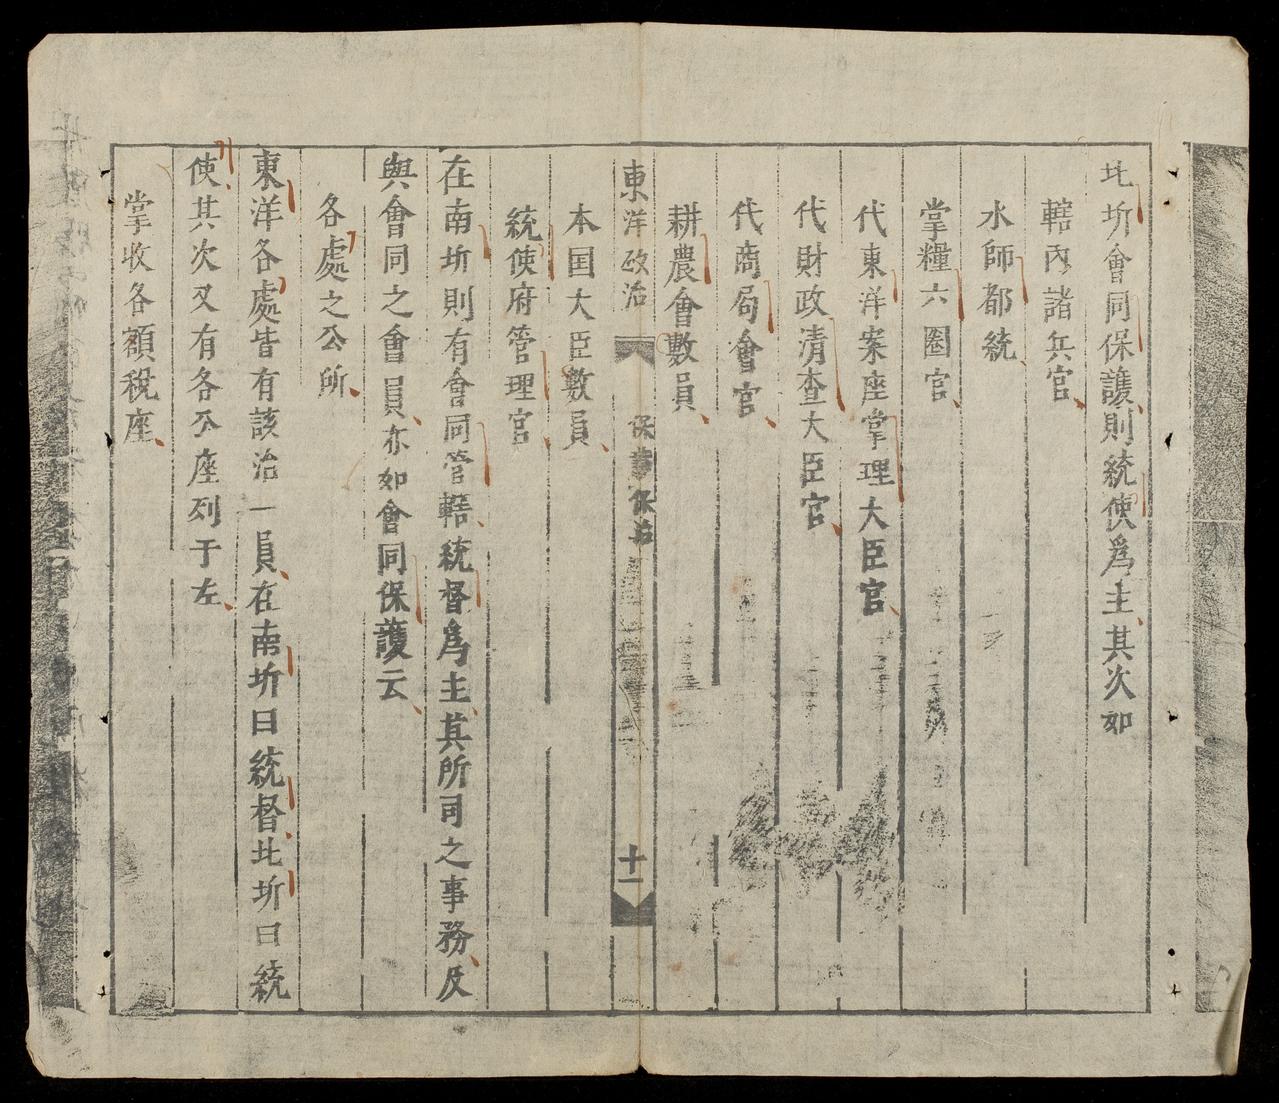 北圻會同保護則統使爲主其次如
轄內諸兵官
水師都統
掌糧六圈官
代東洋案座掌理大臣官
代財政清查大臣官
代商局會官
耕農會數員
東洋政治 保護保治 十一
本国大臣數員
統使府管理官
在南圻則有會同管轄統督爲主其所司之事務及
與會同之會員亦如會同保護云
各處之公所
東洋各處皆有該治一員在南圻曰統督北圻曰統
使其次又有各公座列于左
掌收各額稅座